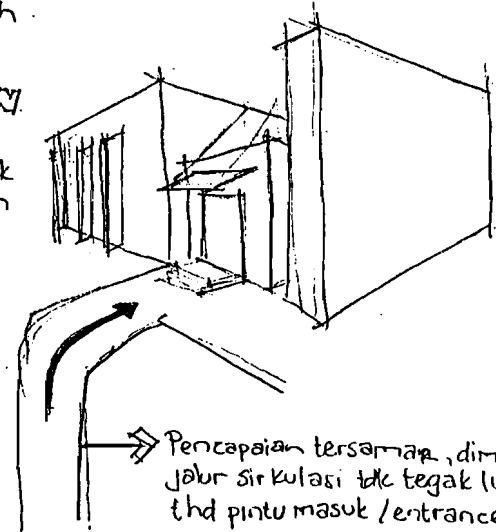 Pencapaian tersamar, dim
jalur sirkulasi tdk tegak lu
thd pintu masuk / entrance